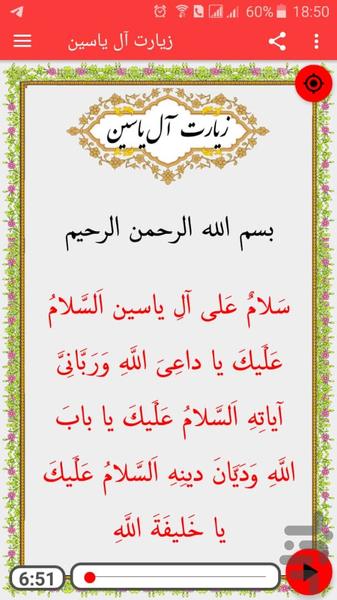 60% 18:50
زیارت آل یاسین
زیارت آل یاسین
بسم الله الرحمن الرحیم
سَلامٌ عَلى آلِ ياسين اَلسَّلامُ
عَلَيكَ يا داعِىَ اللَّهِ وَرَبّانِىَّ
آياتِهِ اَلسَّلامُ عَلَيكَ يا بابَ
اللَّهِ وَدَيّانَ دينِهِ اَلسَّلامُ عَلَيكَ
يا خَليفَةَ اللَّهِ
6:51